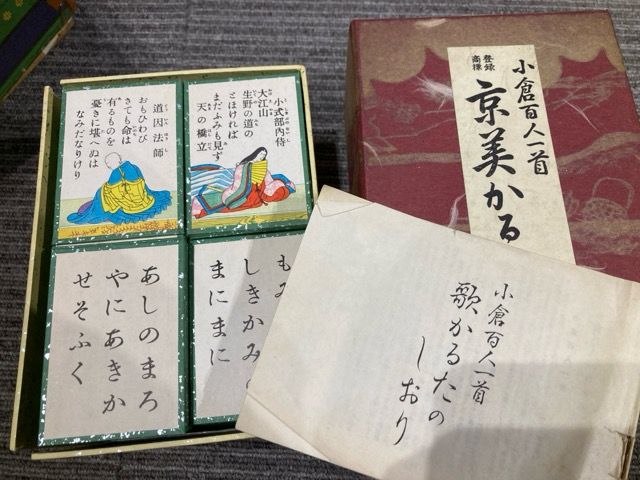 道因法師
おもひわび
さても命は
有るものを
憂きに堪へぬは
なみだなりけり
小式部内侍
大江山
生野の道の
とほければ
まだふみも見ず
天の橋立
あしのまろ
やにあきか
せそふく
もみ
しきかみの
まにまに
小倉百人一首
登録
商標
京美かる
小倉百人一首
歌かるたの
しおり